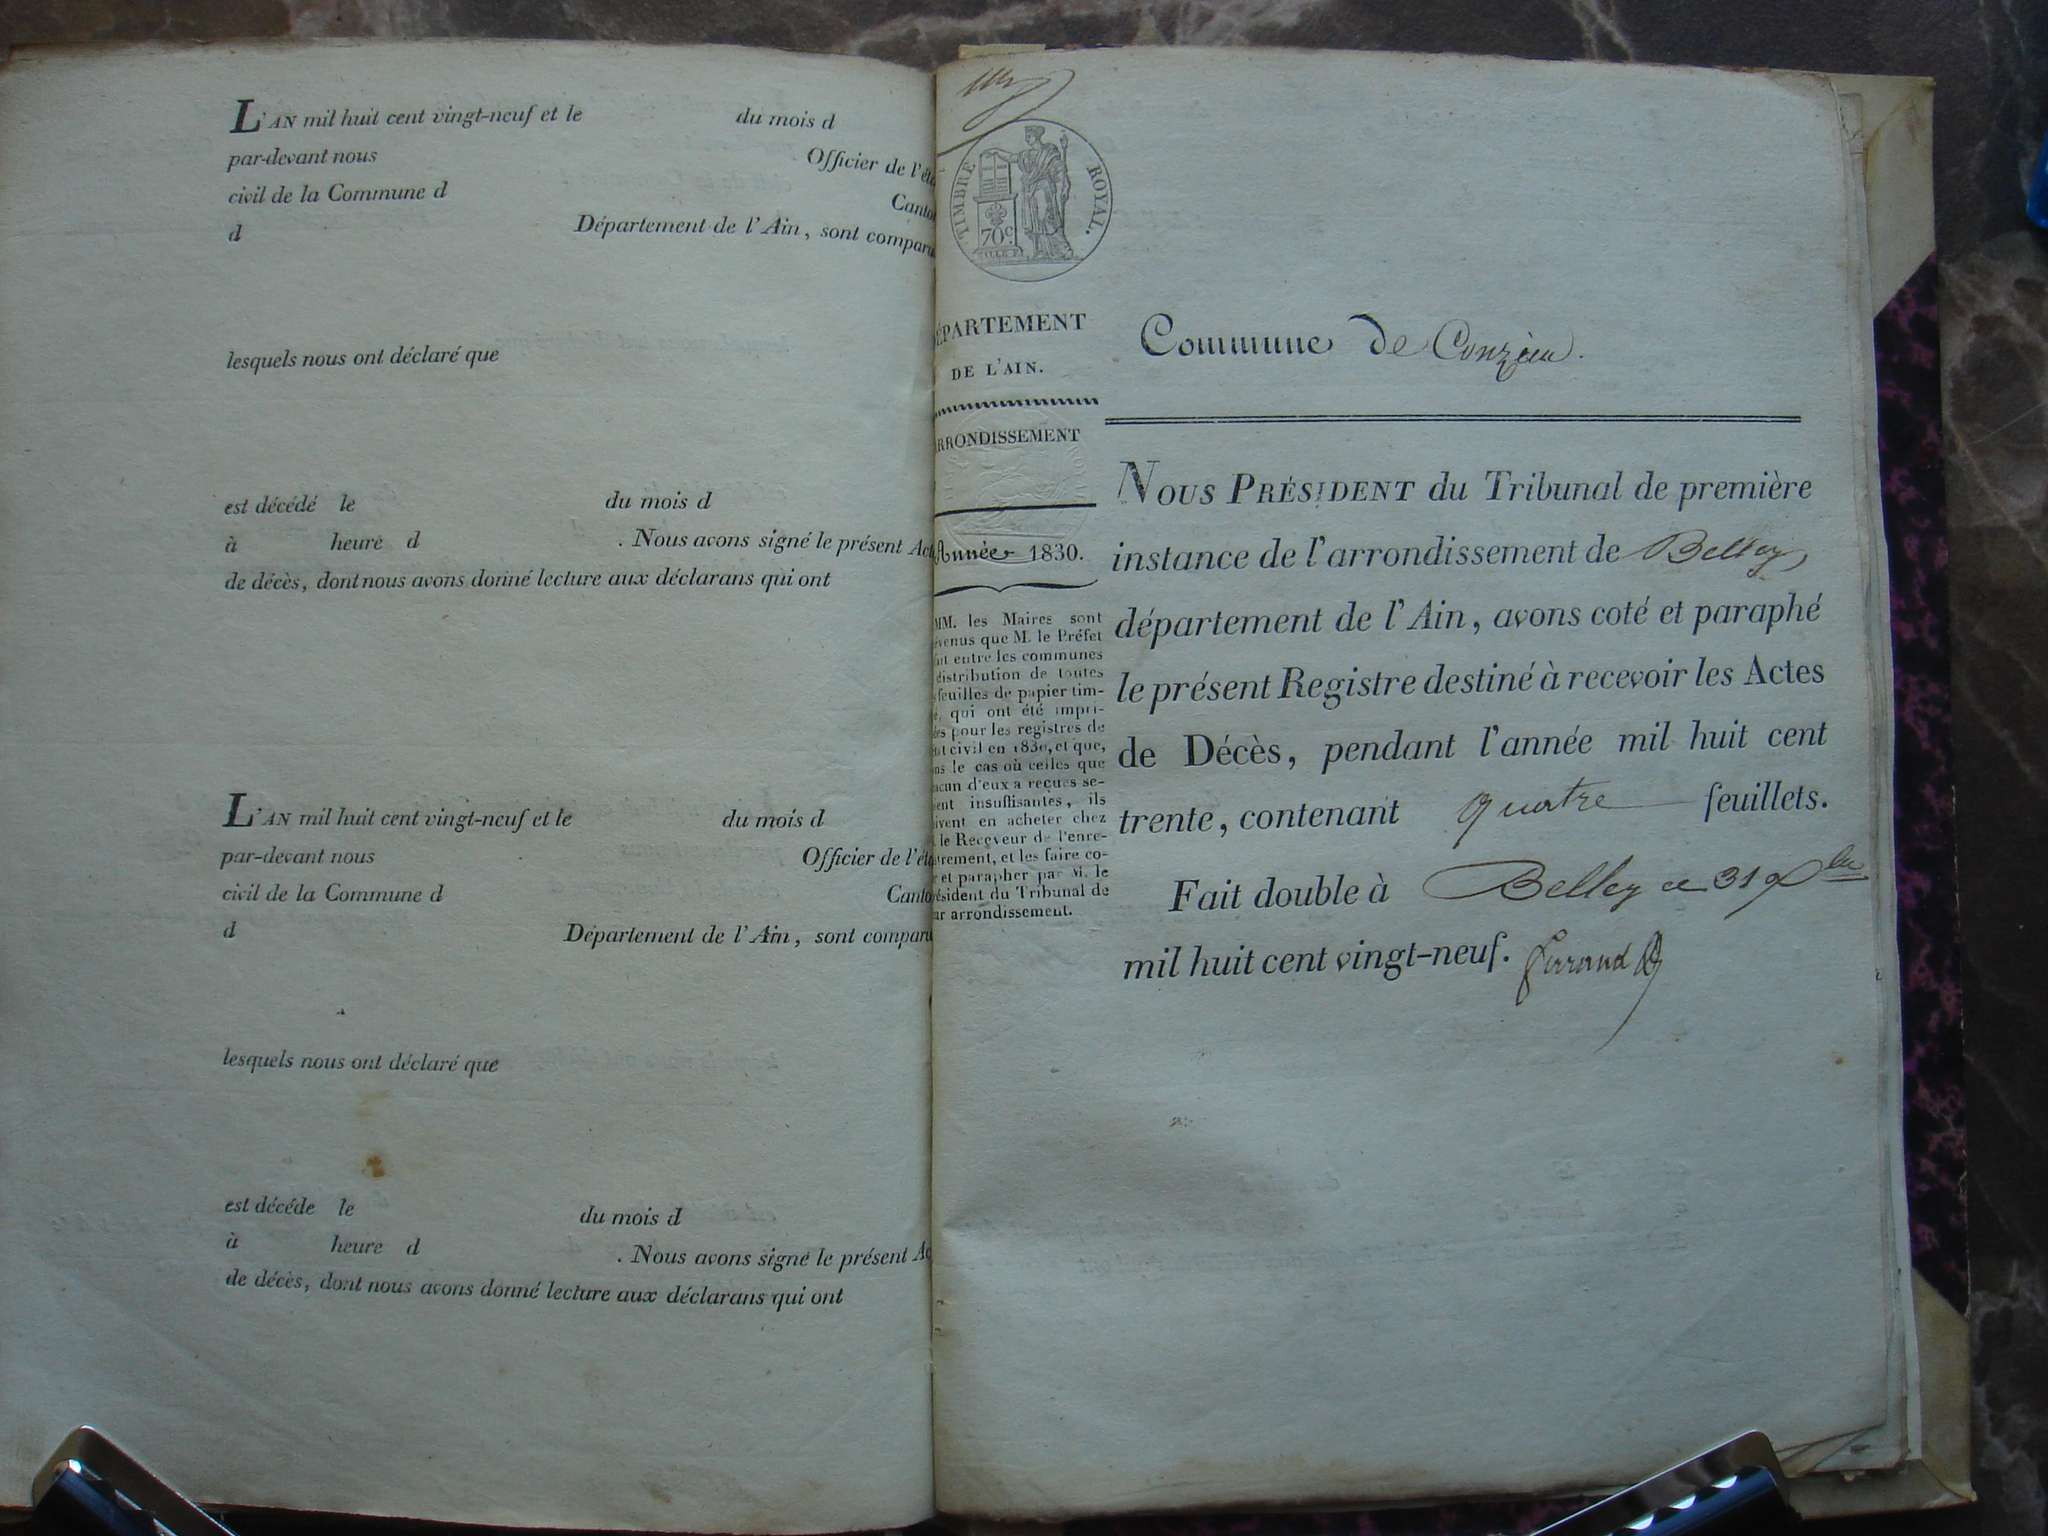 L'AN mil huit cent vingt-neuf et le du mois d
par-devant nous Officier de l'éta
civil de la Commune d Canto
d Département de l'Ain, sont comparu
lesquels nous ont déclaré que
est décédé le du mois d
à heure d . Nous avons signé le présent Act
de décès, dont nous avons donné lecture aux déclarans qui ont
L'AN mil huit cent vingt-neuf et le du mois d
par-devant nous Officier de l'éta
civil de la Commune d Canto
d Département de l'Ain, sont comparu
lesquels nous ont déclaré que
est décéde le du mois d
à heure d . Nous avons signé le présent Ac
de décès, dont nous avons donné lecture aux déclarans qui ont
TIMBRE ROYAL.
70c.
ÉPARTEMENT
DE L'AIN.
RRONDISSEMENT
Année 1830.
MM. les Maires sont
évenus que M. le Préfet
ait entre les communes
distribution de toutes
feuilles de papier tim-
é, qui ont été impri-
ées pour les registres de
at civil en 1830, et que,
ns le cas où celles que
acun d'eux a reçues se-
ent insuffisantes, ils
ivent en acheter chez
le Receveur de l'enre-
trement, et les faire co-
r et parapher par M. le
ésident du Tribunal de
ur arrondissement.
Commune de Conzieu.
NOUS PRÉSIDENT du Tribunal de première
instance de l'arrondissement de Belley
département de l'Ain, avons coté et paraphé
le présent Registre destiné à recevoir les Actes
de Décès, pendant l'année mil huit cent
trente, contenant quatre feuillets.
Fait double à Belley ce 31 Xbre
mil huit cent vingt-neuf.